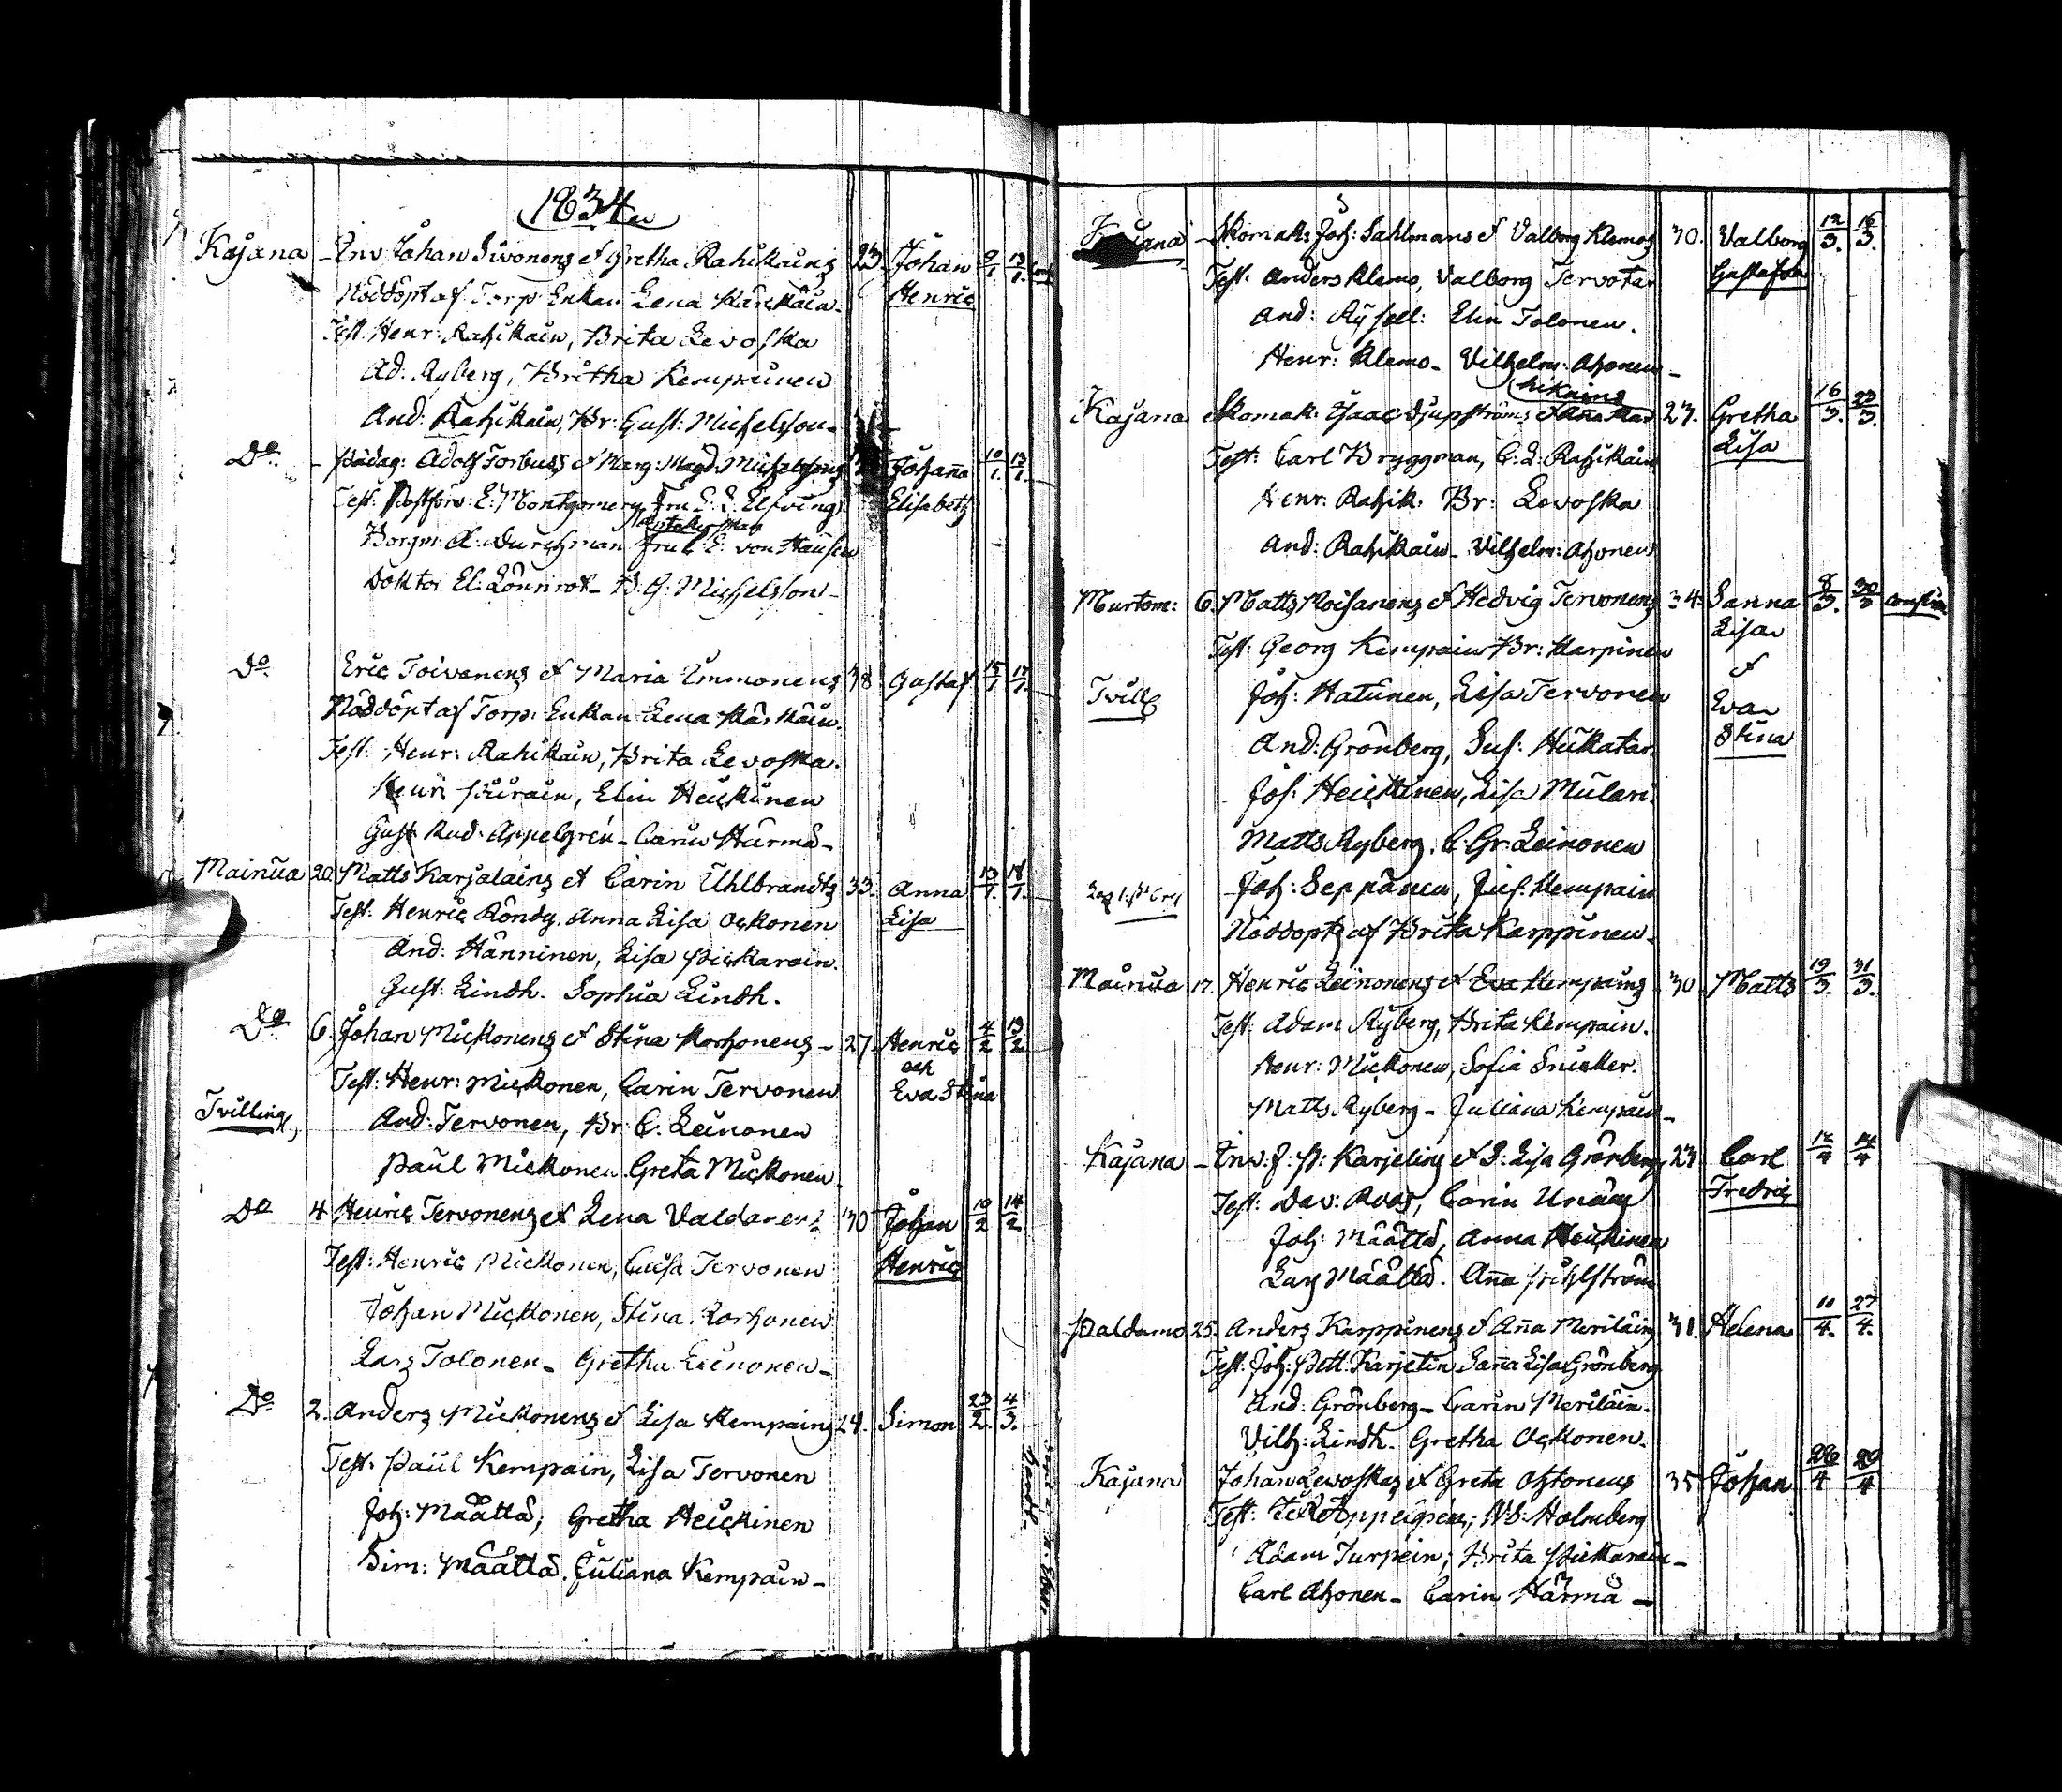 1834
Kajana – Inv Johan Sivonens et Gretha Rahikains 23 Johan 9/1 13/1
Nöddöpt af Torp. Enkan Lena Kärkkäin. Henric
Test. Henr: Rahikain, Brita Levoska
Ad. Ryberg, Britha Kempainen
And: Rahikain, Br: Gust: Michelsson –
Do – Pädag: Adolf Forbuss et Marg: Magd. Michelssons Johanna 10/1 13/1
Test. Postförv: E. Montgomery Fru E. E. Elfving Elisabeth
Borgm: A: Durchman Fru C. E. von Hausen
Doktor El: Lönnrot – B. G. Michelsson –
Do Eric Toivanens et Maria Immonens 38 Gustaf 15/1 17/1
Nöddöpt af Torp. Enkan Lena Kärkkäin.
Test: Henr: Rahikain, Brita Levoska.
Henr: Piirain, Elin Heickinen
Gust Rud. Appelgrén – Carin Härmä –
Mainua 20. Matts Karjalains et Carin Uhlbrandts 33. Anna 13/1. 18/1.
Test: Henric Röndy. Anna Lisa Ockonen Lisa
And: Hänninen, Lisa Pickarain.
Gust: Lindh. Sophia Lindh.
Do 6. Johan Mickonens et Stina Korhonens – 27. Henric 4/2 13/2
och
Test: Henr: Mickonen, Carin Tervonen Eva Stina
Tvilling
And: Tervonen, Br: C. Leinonen
Paul Mickonen. Greta Mickonen
Do 4 Henric Tervonens et Lena Valdanens 30 Johan 10/2 14/2
Test: Henric Mickonen, Caisa Tervonen Henric
Johan Mickonen, Stina Korhonen
Lars Tolonen – Gretha Leinonen –
Do 2. Anders Mickonens et Lisa Kempains 24. Simon 23/2. 4/3.
Test. Paul Kempain, Lisa Tervonen
Joh: Määttä, Gretha Heickinen
Sim: Määttä. Juliana Kempain –
Kajana – Skomak: Joh: Sahlmans et Valborg Klemos 30. Valborg 12/3. 16/3.
Test: Anders Klemo, Valborg Tervotar Gustafva
And: Rysell: Elin Tolonen.
Henr: Klemo – Vilhelm: Ahonen –
hikains
Kajana Skomak: Isaac Djupströms et Anna Ra 27. Gretha 16/3. 23/3.
Test: Carl Bryggman, C. L. Rahikain Lisa
Henr: Rahik: Br: Levoska
And: Rahikain – Vilhelm: Ahonen
Murtom: 6. Matts Moisanens et Hedvig Tervonens 34. Sanna 8/3. 30/3
Test: Georg Kempain Br: Karpinen Lisa
Tvill Joh: Hatunen, Lisa Tervonen et
Eva
And: Grönberg, Sus: Huikatar. Stina
Joh. Heickinen, Lisa Mulari.
Matts Ryberg. C. Gr. Leinonen
Joh: Seppänen, Jus. Kempain
Nöddöpta af Brita Karppinen.
Mainua 17. Henric Leinonens et Eva Kempains 30 Matts 19/3. 31/3.
Test: Adam Ryberg, Brita Kempain.
Henr: Mickonen, Sofia Snicker.
Matts Ryberg – Juliana Kempain –
Kajana – Inv: J: P: Karjelins et S: Lisa Grönbergs 27 Carl 12/4 14/4
Test: Dav: Roos, Carin Unäin Fredric
Joh: Määttä, Anna Heickinen
Lars Määttä. Anna Pihlström
Paldamo 25. Anders Karppinens et Anna Meriläins 31. Helena 11/4. 27/4.
Test. Joh: Pett. Karjelin Sanna Lisa Grönberg
And: Grönberg – Carin Meriläin.
Vilh: Lindh. Gretha Ockonen.
Kajana Johan Levoskas et Greta Ohtonens 35 Johan 26/4 29/4
Test: Appelgren; Holmberg
Adam Turpein; Brita Pickarain –
Carl Ahonen – Carin Härmä –